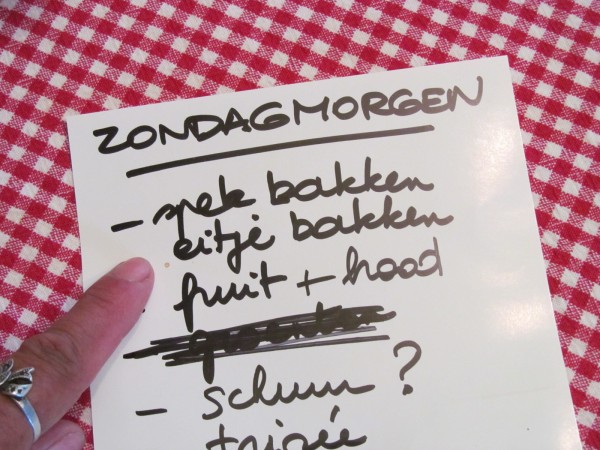 ZONDAGMORGEN
- spek bakken
eitje bakken
fruit + hood
- schuur ?